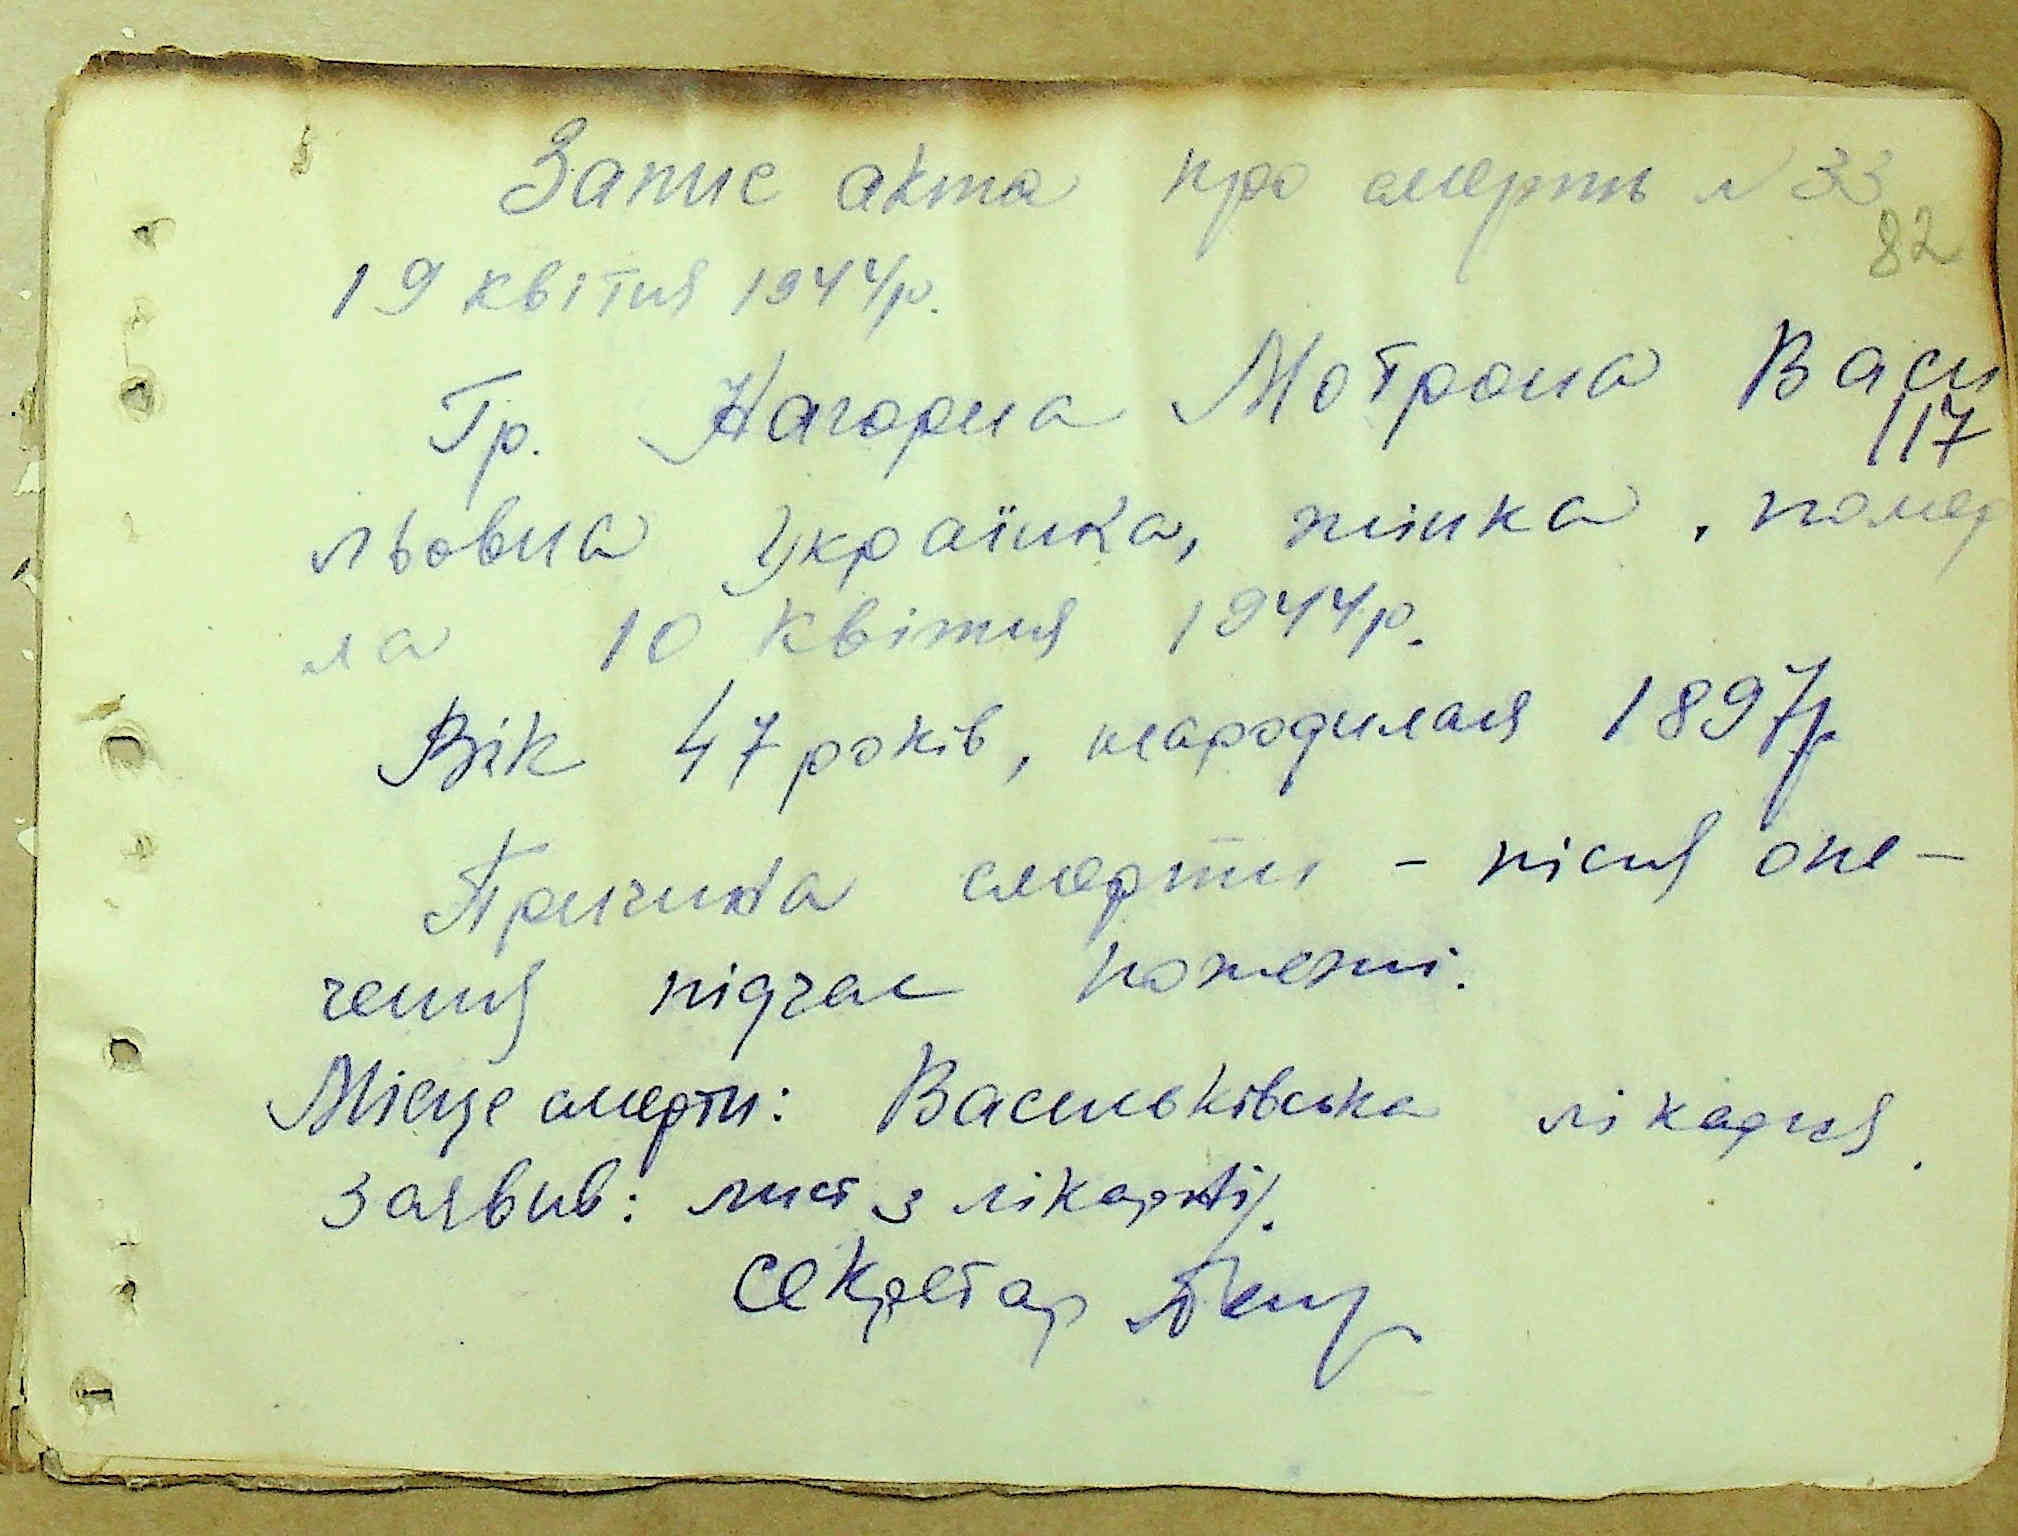 Запис акта про смерть N 33
82
19 квітня 1944р.
Гр. Нагорна Мотрона Васи
117
льовна українка, жінка, помер
ла 10 квітня 1944р.
Вік 47 років, народилася 1897р
Причина смерти - після опе-
чення підчас пожежі.
Місце смерти: Васильківська лікарня.
Заявив: лист з лікарні.
Секретар